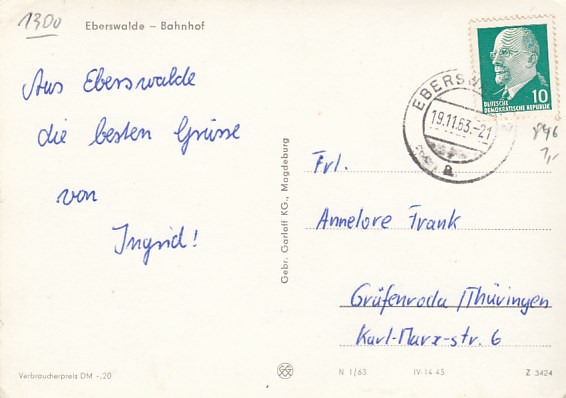 1300
Eberswalde – Bahnhof
Aus Eberswalde
die besten Grüsse
von
Ingrid!
Verbraucherpreis DM -,20
Gebr. Garloff KG., Magdeburg
DEUTSCHE
DEMOKRATISCHE REPUBLIK
10
EBERSW
19.11.63.-21
a
846
1,-
Frl.
Annelore Frank
Gräfenroda /Thüringen
Karl-Marx-str. 6
N 1/63 IV-14-45 Z 3424